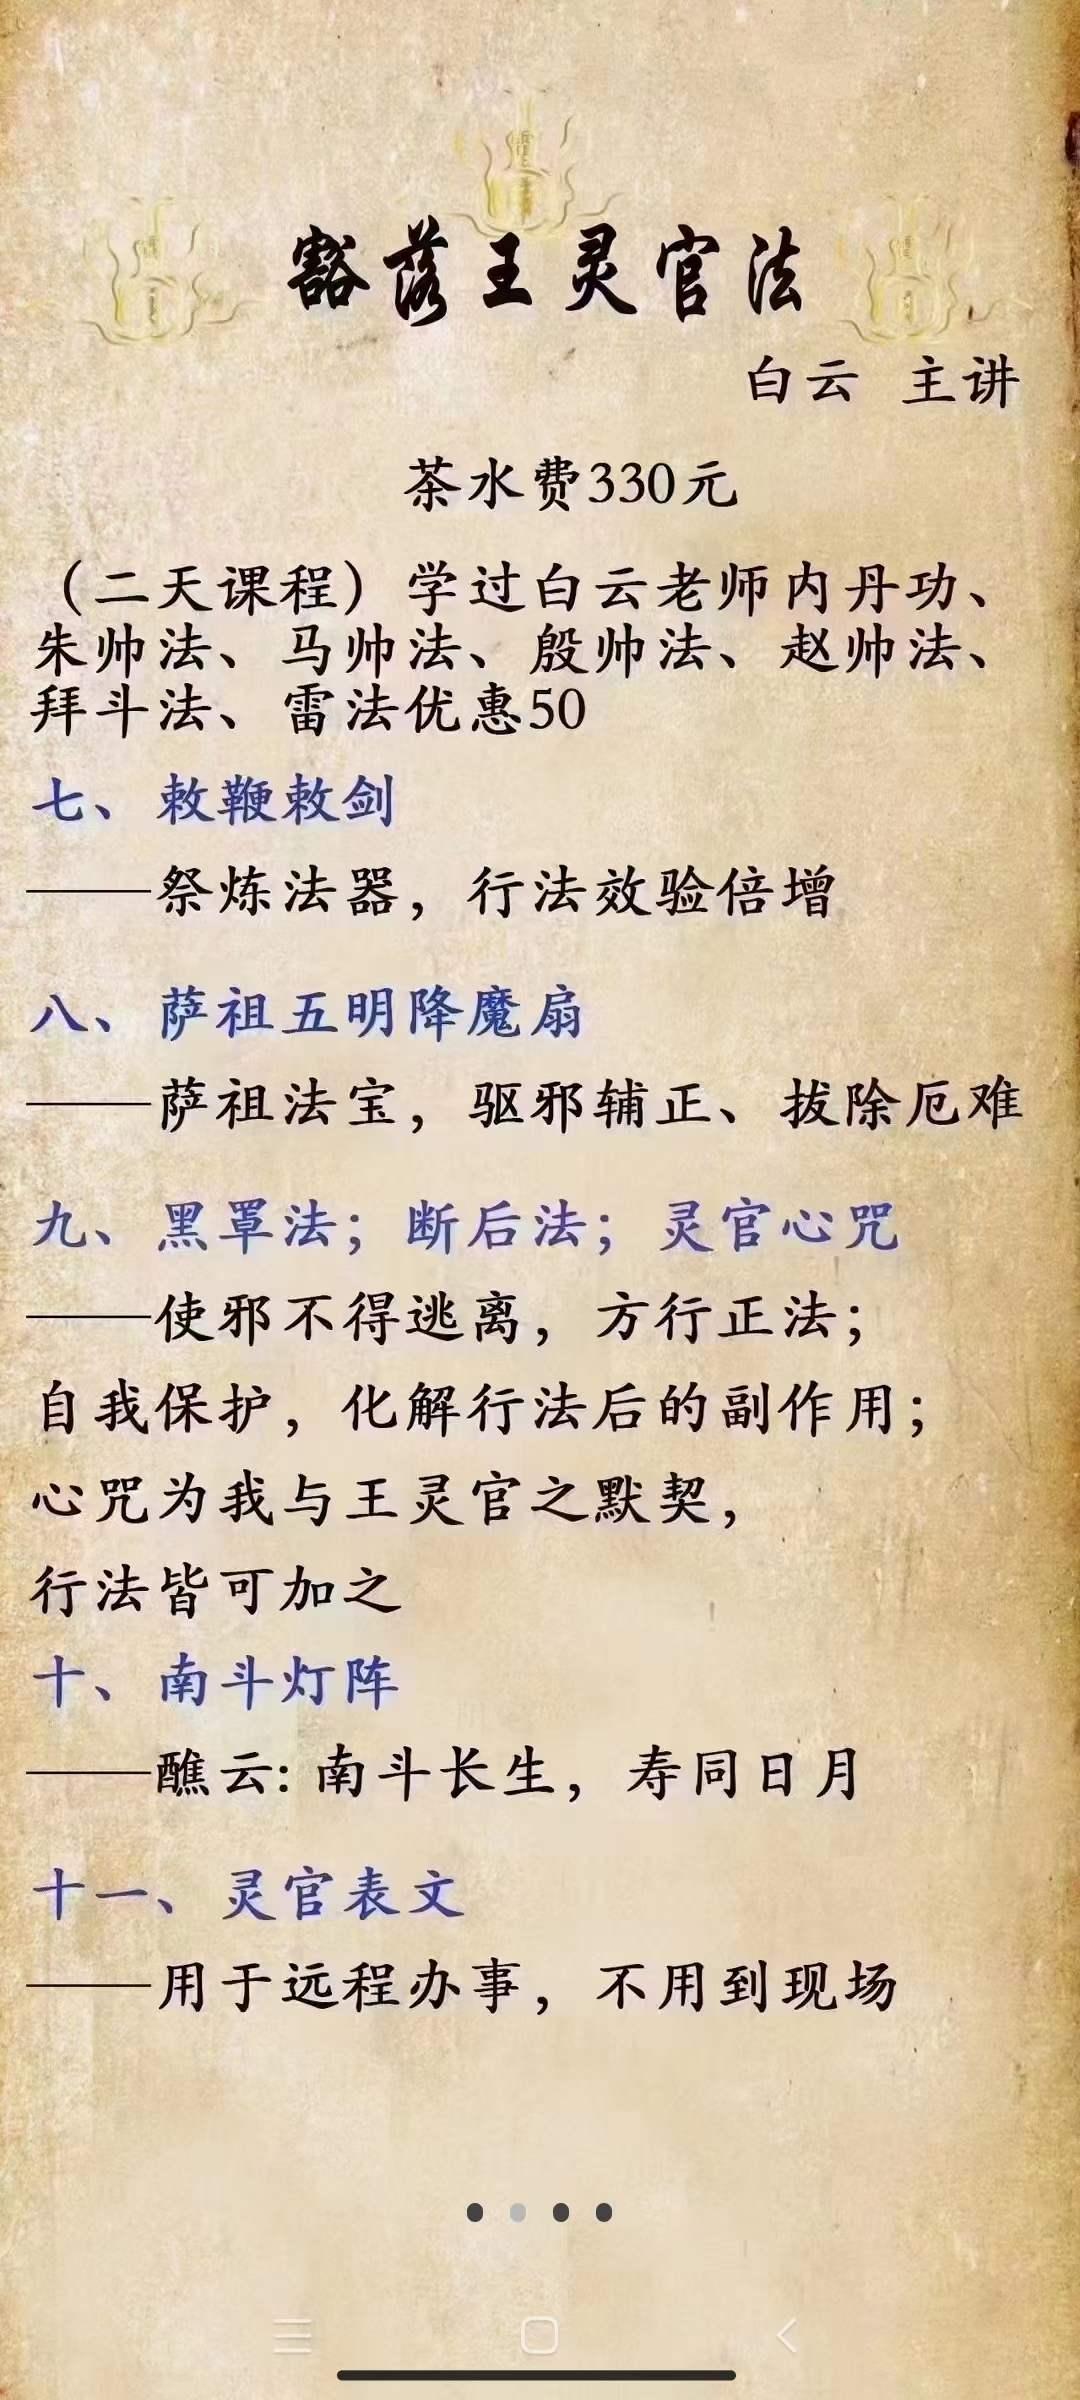 豁落王灵官法
白云 主讲
茶水费330元
（二天课程）学过白云老师内丹功、
朱帅法、马帅法、殷帅法、赵帅法、
拜斗法、雷法优惠50
七、敕鞭敕剑
——祭炼法器，行法效验倍增
八、萨祖五明降魔扇
——萨祖法宝，驱邪辅正、拔除厄难
九、黑罩法；断后法；灵官心咒
——使邪不得逃离，方行正法；
自我保护，化解行法后的副作用；
心咒为我与王灵官之默契，
行法皆可加之
十、南斗灯阵
——醮云: 南斗长生，寿同日月
十一、灵官表文
——用于远程办事，不用到现场